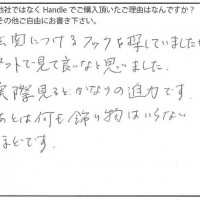 他社ではなく Handle でご購入頂いたご理由はなんですか？
その他ご自由にお書き下さい。
玄関につけるフックを探していましたが
ネットで見て良いなと思いました。
実際見るとかなりの迫力です。
あとは何も飾り物はいらない
ほどです。